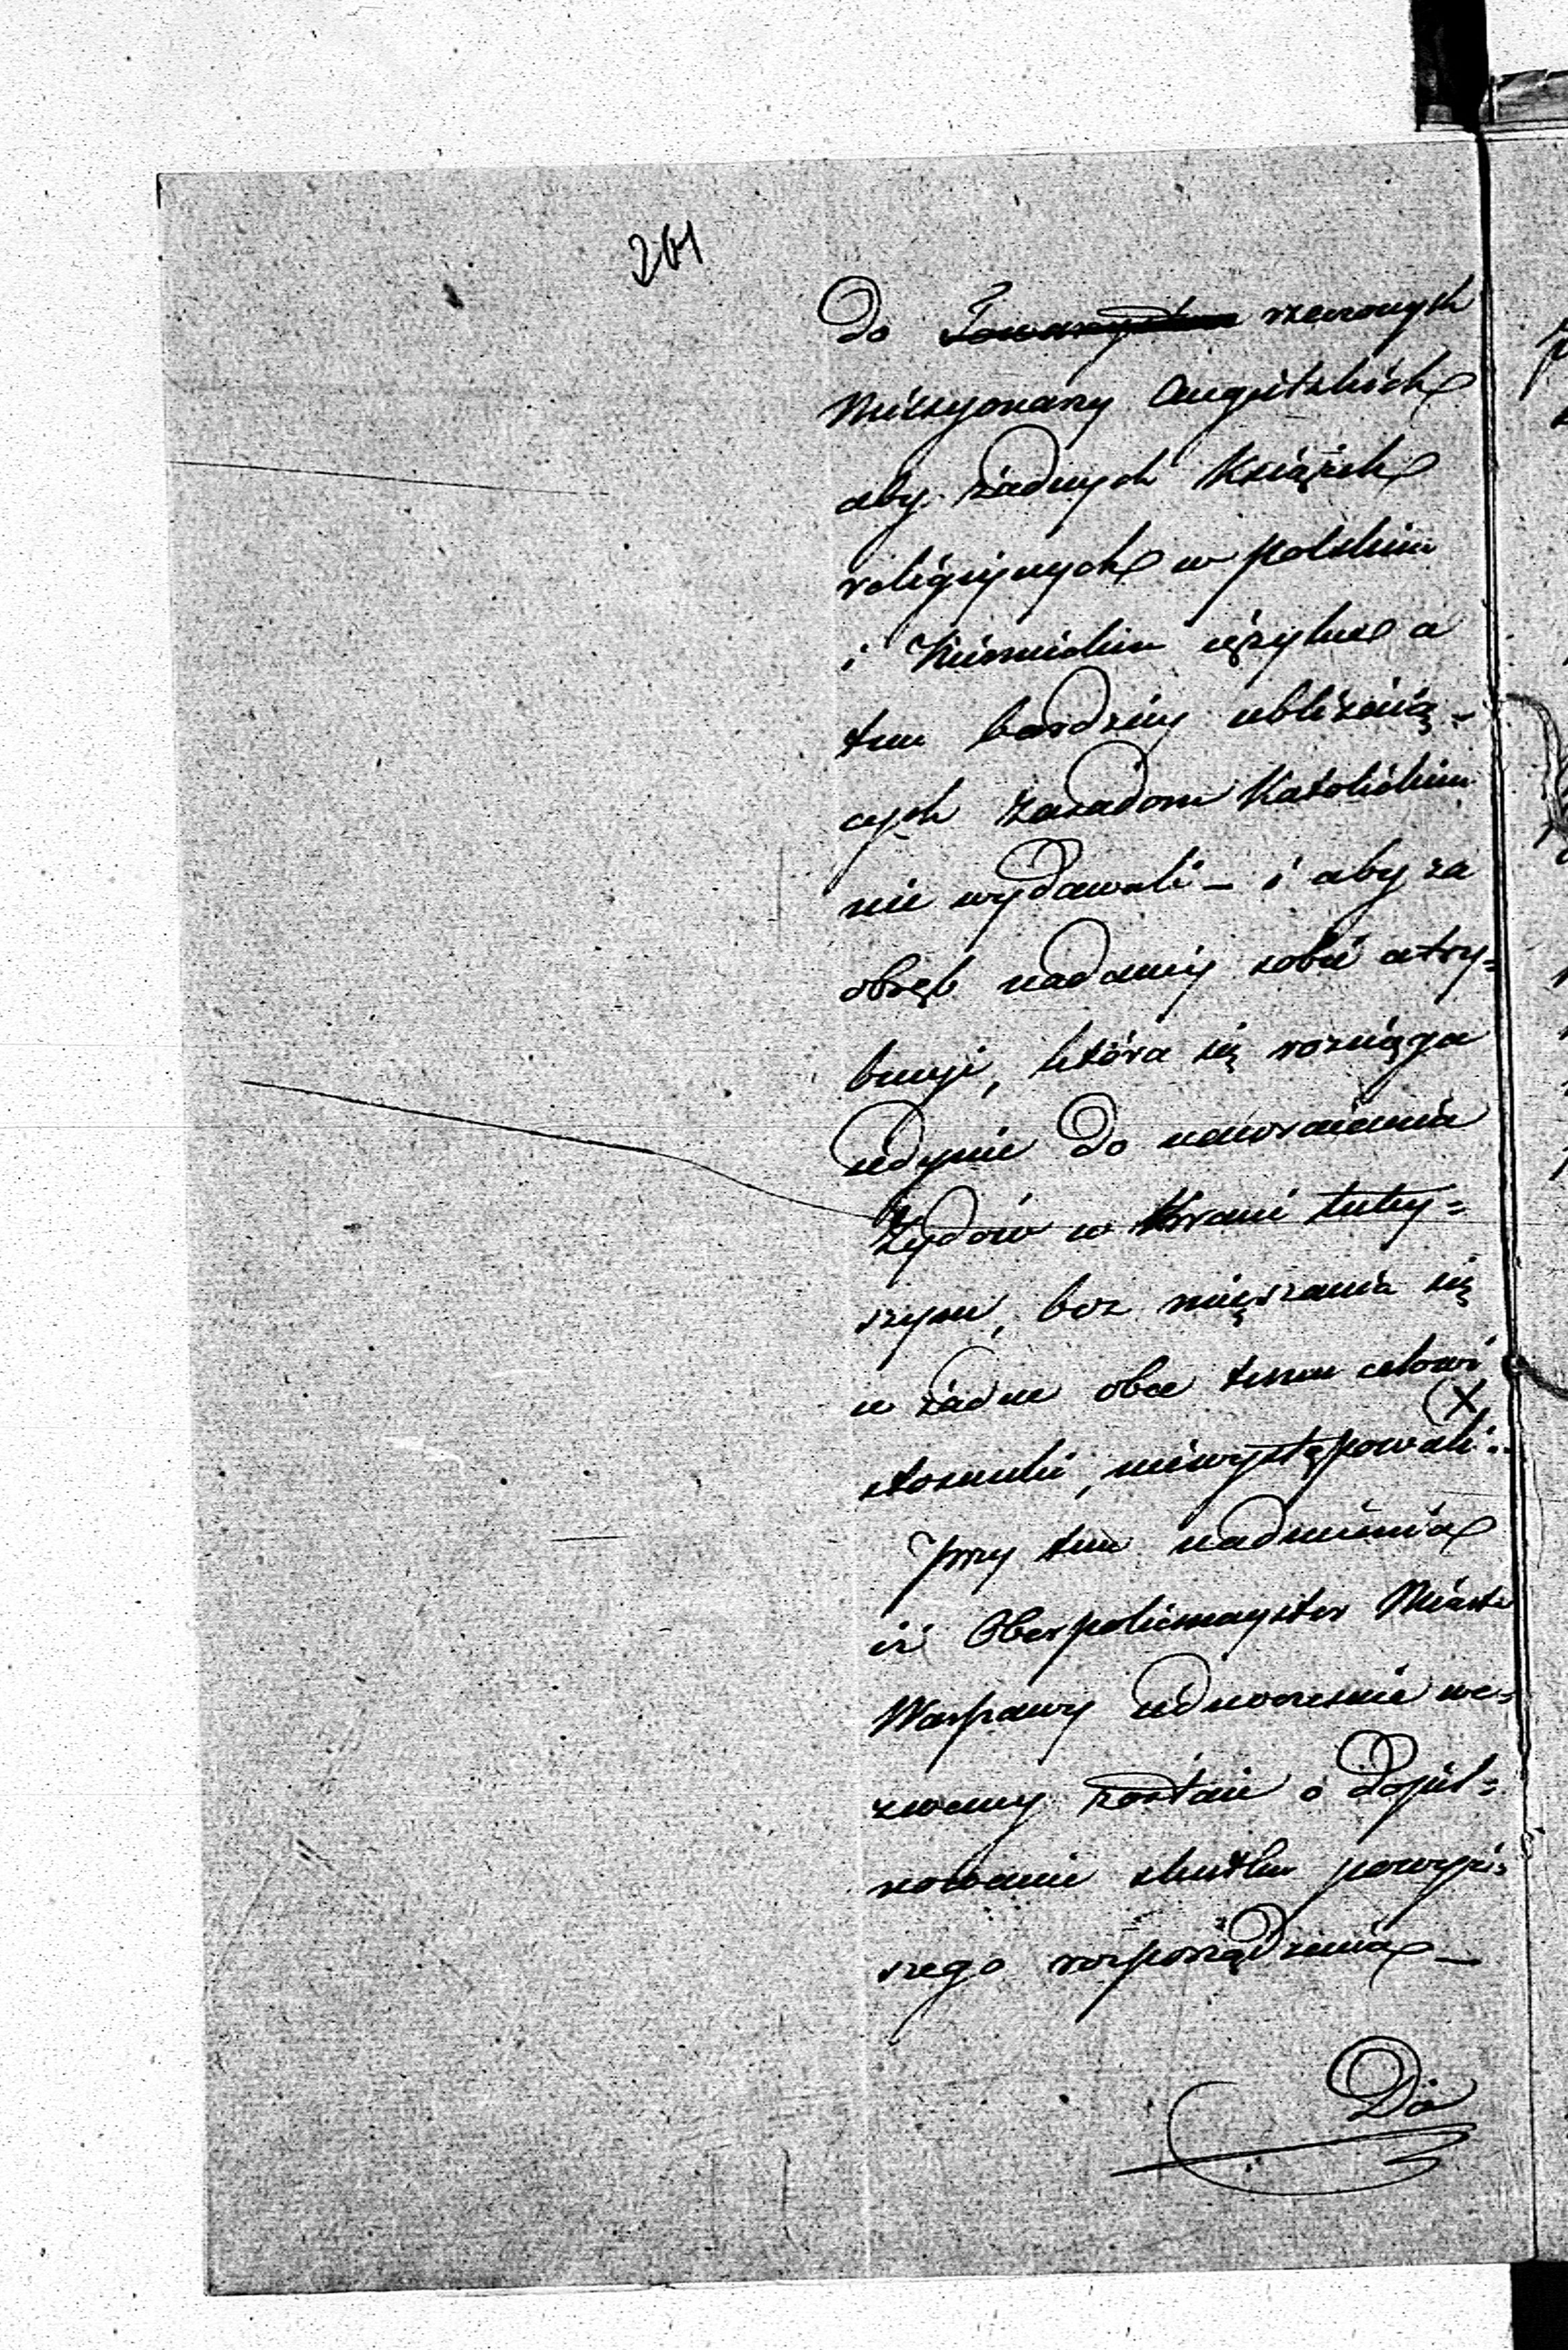 201
do Towarzystwa rzeczonych
Missyonarzy Angielskich
aby żadnych Książek
religijnych w polskim
i Niemieckim ięzyku a
tem bardziey ubliżaią-
cych zasadom Katolickim
nie wydawali – i aby za
obręb nadaney sobie atry=
bucyi, która się rozciąga
iedynie do nawracania
Żydów w Kraiu tutey=
szym, bez mięszania się
w żadne obce temu celowi
stosunki, niewystępowali.
(X)
Przy tem nadmienia
iż Oberpolicmayster Miasta
Warszawy iednocześnie we=
zwany zostaie o dopil=
nowanie skutku powyż=
szego rozporządzenia –
Do